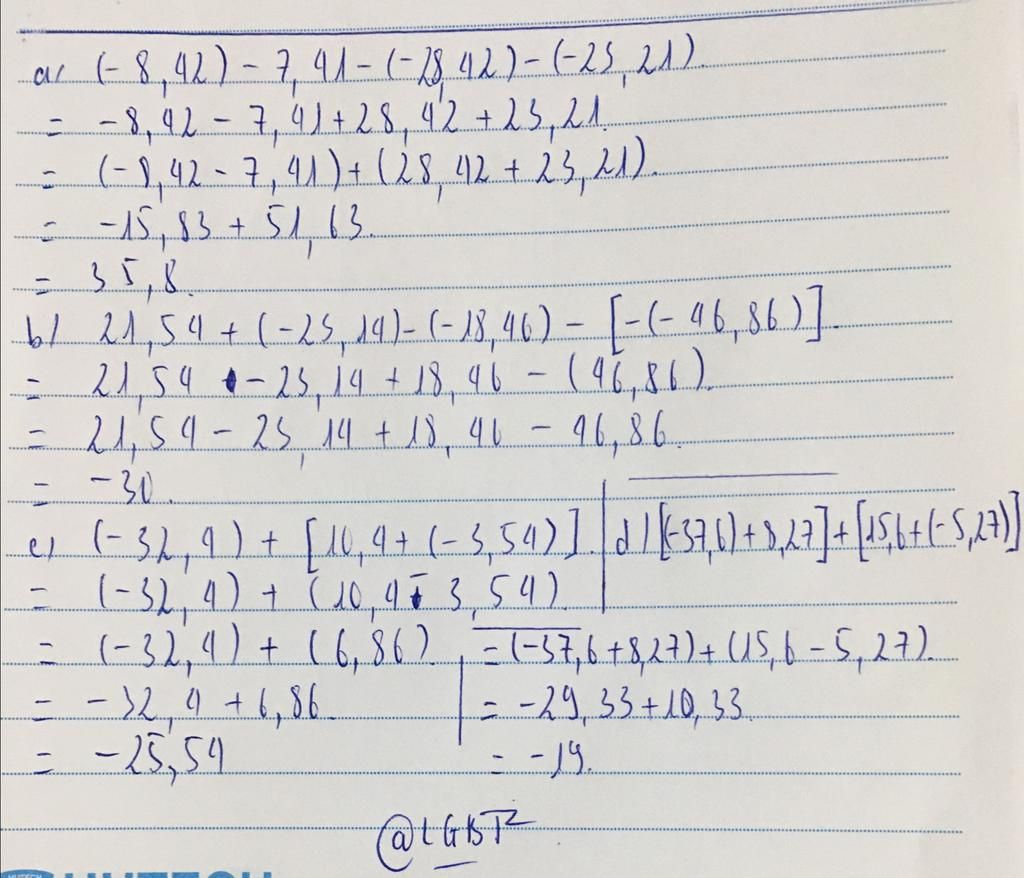 a/ (-8,42) - 7,41 - (-28,42) - (-23,21).
= -8,42 - 7,41 + 28,42 + 23,21.
= (-8,42 - 7,41) + (28,42 + 23,21).
= -15,83 + 51,63.
= 35,8.
b/ 21,54 + (-23,14) - (-18,46) - [-(-46,86)].
= 21,54 - 23,14 + 18,46 - (46,86).
= 21,54 - 23,14 + 18,46 - 46,86.
= -30.
c/ (-32,4) + [10,4 + (-3,54)].
= (-32,4) + (10,4 - 3,54)
= (-32,4) + (6,86).
= -32,4 + 6,86.
= -25,54
d/ [(-37,6) + 8,27] + [15,6 + (-5,27)]
= (-37,6 + 8,27) + (15,6 - 5,27).
= -29,33 + 10,33.
= -19.
@LGBT²